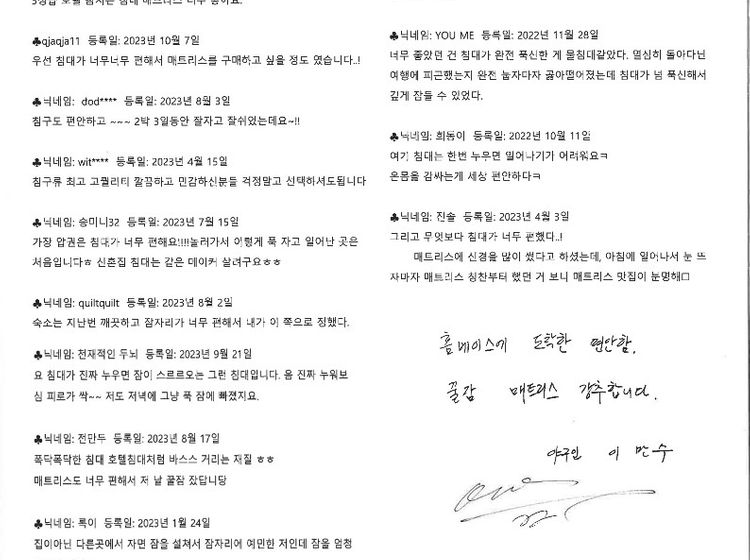 ♣qjaqja11 등록일: 2023년 10월 7일
우선 침대가 너무너무 편해서 매트리스를 구매하고 싶을 정도 였습니다..!
♣닉네임: dod**** 등록일: 2023년 8월 3일
침구도 편안하고 ~~~ 2박 3일동안 잘자고 잘쉬었는데요~!!
♣닉네임: wit**** 등록일: 2023년 4월 15일
침구류 최고 고퀄리티 깔끔하고 민감하신분들 걱정말고 선택하셔도됩니다
♣닉네임: 송미니32 등록일: 2023년 7월 15일
가장 압권은 침대가 너무 편해요!!!!놀러가서 이렇게 푹 자고 일어난 곳은
처음입니다ㅎ 신혼집 침대는 같은 메이커 살려구요ㅎㅎ
♣닉네임: quiltquilt 등록일: 2023년 8월 2일
숙소는 지난번 깨끗하고 잠자리가 너무 편해서 내가 이 쪽으로 정했다.
♣닉네임: 천재적인 두뇌 등록일: 2023년 9월 21일
요 침대가 진짜 누우면 잠이 스르르오는 그런 침대입니다. 음 진짜 누워보
심 피로가 싹~~ 저도 저녁에 그냥 푹 잠에 빠졌지요.
♣닉네임: 전단두 등록일: 2023년 8월 17일
폭닥폭닥한 침대 호텔침대처럼 바스스 거리는 재질 ㅎㅎ
매트리스도 너무 편해서 저 날 꿀잠 잤답니당
♣닉네임: 록이 등록일: 2023년 1월 24일
집이아닌 다른곳에서 자면 잠을 설쳐서 잠자리에 예민한 저인데 잠을 엄청
♣닉네임: YOU ME 등록일: 2022년 11월 28일
너무 좋았던 건 침대가 완전 푹신한 게 물침대같았다. 열심히 돌아다닌
여행에 피곤했는지 완전 눕자다자 곯아떨어졌는데 침대가 넘 푹신해서
깊게 잠들 수 있었다.
♣닉네임: 희동이 등록일: 2022년 10월 11일
여기 침대는 한번 누우면 일어나기가 어려워요ㅋ
온몸을 감싸는게 세상 편안하다ㅋ
♣닉네임: 진솔 등록일: 2023년 4월 3일
그리고 무엇보다 침대가 너무 편했다..!
매트리스에 신경을 많이 썼다고 하셨는데, 아침에 일어나서 눈 뜨
자마자 매트리스 칭찬부터 했던 거 보니 매트리스 맛집이 분명해□
홈메이스에 도착한 편안함.
꿀잠 매트리스 강추합니다.
야구인 이 만 수